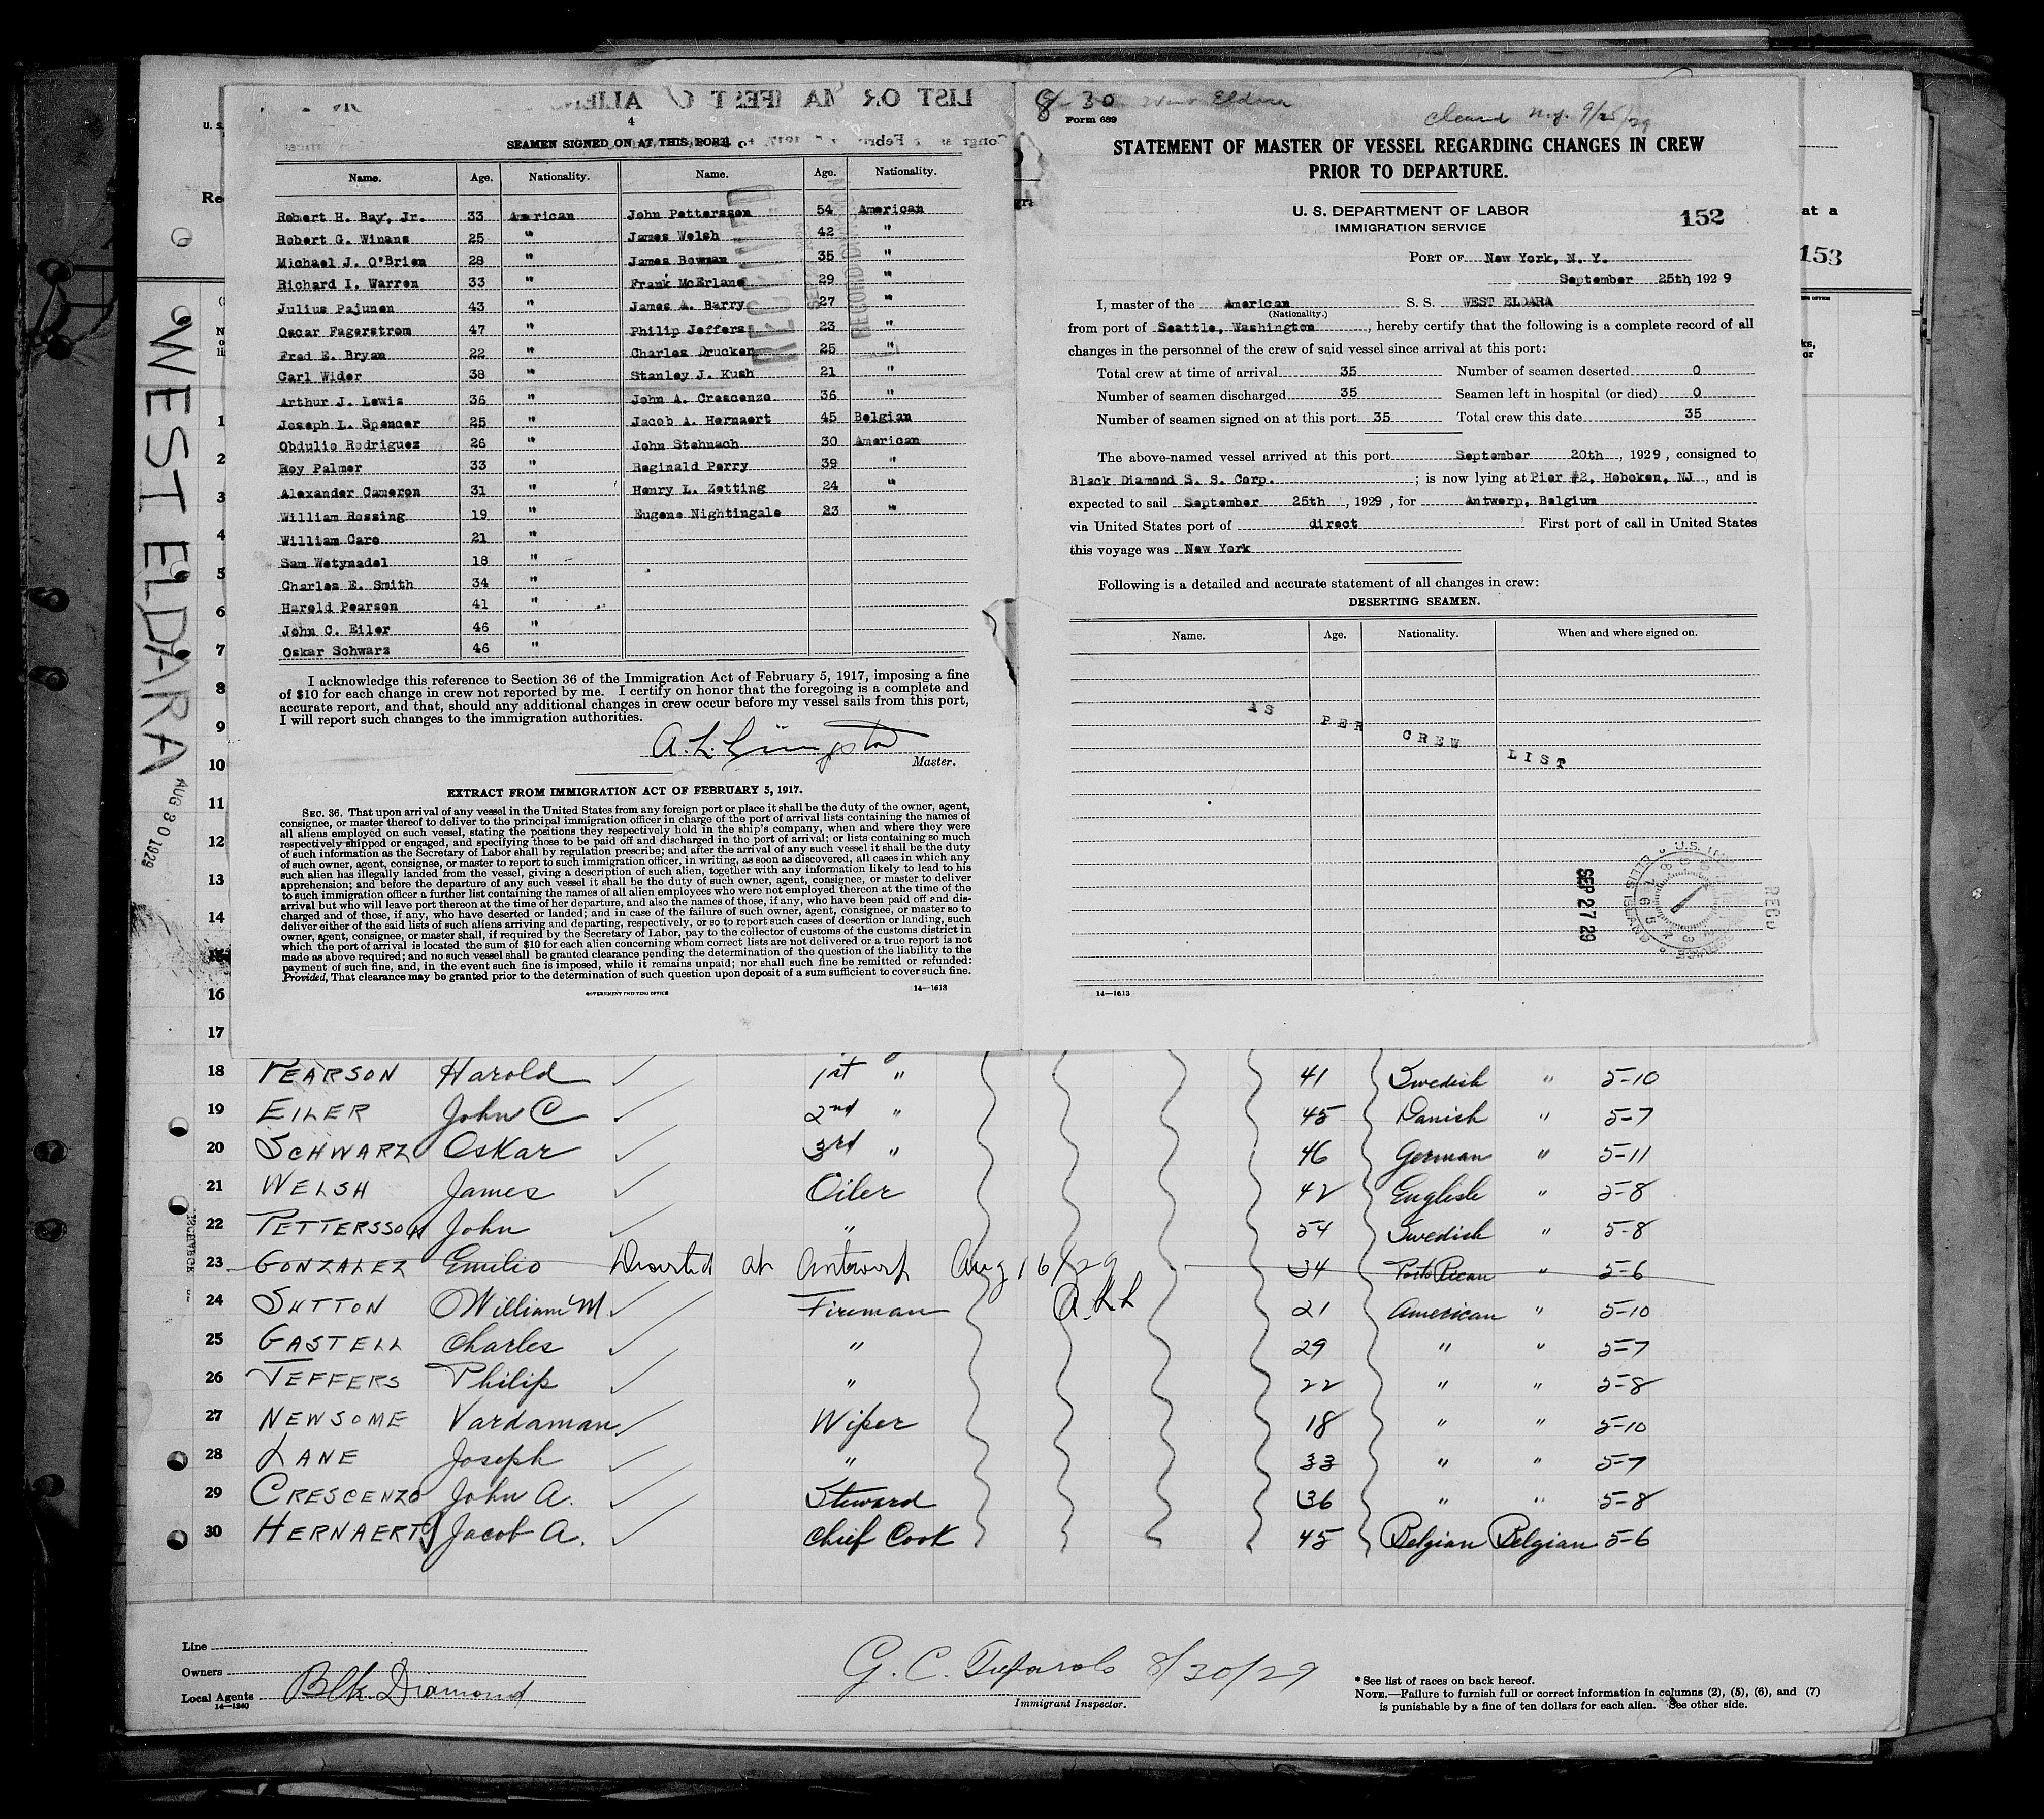 4
SEAMEN SIGNED ON AT THIS PORT.
Name. Age. Nationality. Name. Age. Nationality.
Robert H. Bay, Jr. 33 American John Pettersson 54 American
Robert G. Winans 25 " James Welsh 42 "
Michael J. O'Brien 28 " James Bowman 35 "
Richard I. Warren 33 " Frank McErlane 29 "
Julius Pajunen 43 " James A. Barry 27 "
Oscar Fagerstrom 47 " Philip Jeffers 23 "
Fred E. Bryan 22 " Charles Drucker 25 "
Carl Wider 38 " Stanley J. Kush 21 "
Arthur J. Lewis 36 " John A. Crescenzo 36 "
Joseph L. Spencer 25 " Jacob A. Hernaert 45 Belgian
Obdulio Rodriguez 26 " John Stehnach 30 American
Roy Palmer 33 " Reginald Perry 39 "
Alexander Cameron 31 " Henry L. Zetting 24 "
William Rossing 19 " Eugene Nightingale 23 "
William Care 21 "
Sam Wetynadel 18 "
Charles E. Smith 34 "
Harold Pearson 41 "
John C. Eiler 46 "
Oskar Schwarz 46 "
I acknowledge this reference to Section 36 of the Immigration Act of February 5, 1917, imposing a fine
of $10 for each change in crew not reported by me. I certify on honor that the foregoing is a complete and
accurate report, and that, should any additional changes in crew occur before my vessel sails from this port,
I will report such changes to the immigration authorities.
A. L. Livingston
Master.
EXTRACT FROM IMMIGRATION ACT OF FEBRUARY 5, 1917.
SEC. 36. That upon arrival of any vessel in the United States from any foreign port or place it shall be the duty of the owner, agent,
consignee, or master thereof to deliver to the principal immigration officer in charge of the port of arrival lists containing the names of
all aliens employed on such vessel, stating the positions they respectively hold in the ship's company, when and where they were
respectively shipped or engaged, and specifying those to be paid off and discharged in the port of arrival; or lists containing so much
of such information as the Secretary of Labor shall by regulation prescribe; and after the arrival of any such vessel it shall be the duty
of such owner, agent, consignee, or master to report to such immigration officer, in writing, as soon as discovered, all cases in which any
such alien has illegally landed from the vessel, giving a description of such alien, together with any information likely to lead to his
apprehension; and before the departure of any such vessel it shall be the duty of such owner, agent, consignee, or master to deliver
to such immigration officer a further list containing the names of all alien employees who were not employed thereon at the time of the
arrival but who will leave port thereon at the time of her departure, and also the names of those, if any, who have been paid off and dis-
charged and of those, if any, who have deserted or landed; and in case of the failure of such owner, agent, consignee, or master so to
deliver either of the said lists of such aliens arriving and departing, respectively, or so to report such cases of desertion or landing, such
owner, agent, consignee, or master shall, if required by the Secretary of Labor, pay to the collector of customs of the customs district in
which the port of arrival is located the sum of $10 for each alien concerning whom correct lists are not delivered or a true report is not
made as above required; and no such vessel shall be granted clearance pending the determination of the question of the liability to the
payment of such fine, and, in the event such fine is imposed, while it remains unpaid; nor shall such fine be remitted or refunded:
Provided, That clearance may be granted prior to the determination of such question upon deposit of a sum sufficient to cover such fine.
GOVERNMENT PRINTING OFFICE 14—1613
8-30 West Eldara
Form 689
Cleared N.Y. 9/25/29
STATEMENT OF MASTER OF VESSEL REGARDING CHANGES IN CREW
PRIOR TO DEPARTURE.
U. S. DEPARTMENT OF LABOR
IMMIGRATION SERVICE
152
PORT OF New York, N. Y.
September 25th, 1929
I, master of the American S. S. WEST ELDARA
(Nationality.)
from port of Seattle, Washington, hereby certify that the following is a complete record of all
changes in the personnel of the crew of said vessel since arrival at this port:
Total crew at time of arrival 35 Number of seamen deserted 0
Number of seamen discharged 35 Seamen left in hospital (or died) 0
Number of seamen signed on at this port 35 Total crew this date 35
The above-named vessel arrived at this port September 20th, 1929, consigned to
Black Diamond S. S. Corp. ; is now lying at Pier #2, Hoboken, NJ, and is
expected to sail September 25th, 1929, for Antwerp, Belgium
via United States port of direct First port of call in United States
this voyage was New York
Following is a detailed and accurate statement of all changes in crew:
DESERTING SEAMEN.
Name. Age. Nationality. When and where signed on.
AS PER CREW LIST
SEP 27 29
REC'D
14—1613
at a
153
WEST ELDARA
AUG 30 1929
1
2
3
4
5
6
7
8
9
10
11
12
13
14
15
16
17
18 PEARSON Harold 1st " 41 Swedish " 5-10
19 EILER John C 2nd " 45 Danish " 5-7
20 SCHWARZ Oskar 3rd " 46 German " 5-11
21 WELSH James Oiler 42 English " 5-8
22 PETTERSSON John " 54 Swedish " 5-8
23 GONZALEZ Emilio Deserted at Antwerp Aug 16/29 34 Porto Rican " 5-6
24 SUTTON William M Fireman A.L.L 21 American " 5-10
25 GASTELL Charles " 29 " " 5-7
26 JEFFERS Philip " 22 " " 5-8
27 NEWSOME Vardaman Wiper 18 " " 5-10
28 LANE Joseph " 33 " " 5-7
29 CRESCENZO John A. Steward 36 " " 5-8
30 HERNAERT Jacob A. Chief Cook 45 Belgian Belgian 5-6
Line
Owners
Local Agents Blk Diamond
14—1240
8/30/29
Immigrant Inspector.
* See list of races on back hereof.
NOTE.—Failure to furnish full or correct information in columns (2), (5), (6), and (7)
is punishable by a fine of ten dollars for each alien. See other side.